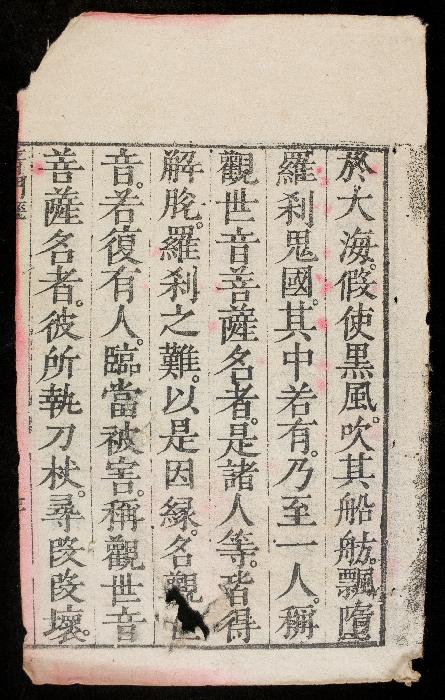 於大海。假使黒風。吹其船舫。飄墮
羅剎鬼國。其中若有。乃至一人稱
觀世音菩薩名者。是諸人等。皆得
解脫。羅剎之難。以是因緣。名觀世
音。若復有人。臨當被害。稱觀世音
菩薩名者。彼所執刀杖。尋段段壞。